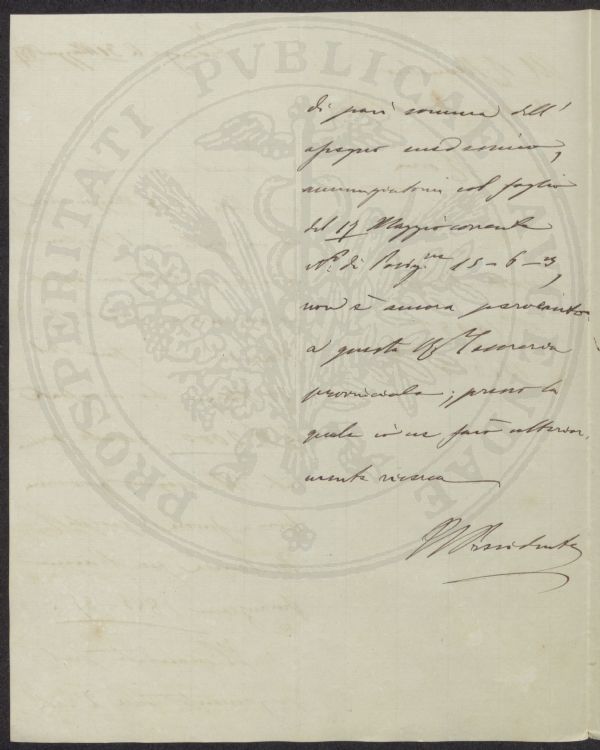 PROSPERITATI PVBLICAE AVGENDAE
di pari somma dell'
assegno medesimo,
annunziatomi col foglio
del 17 Maggio corrente
N.º di Posiz.ne 15-6-
non è ancora pervenuto
a questa Tesoreria
provinciale; presso la
quale io ne farò ulterior.
mente ricerca
Il Presidente